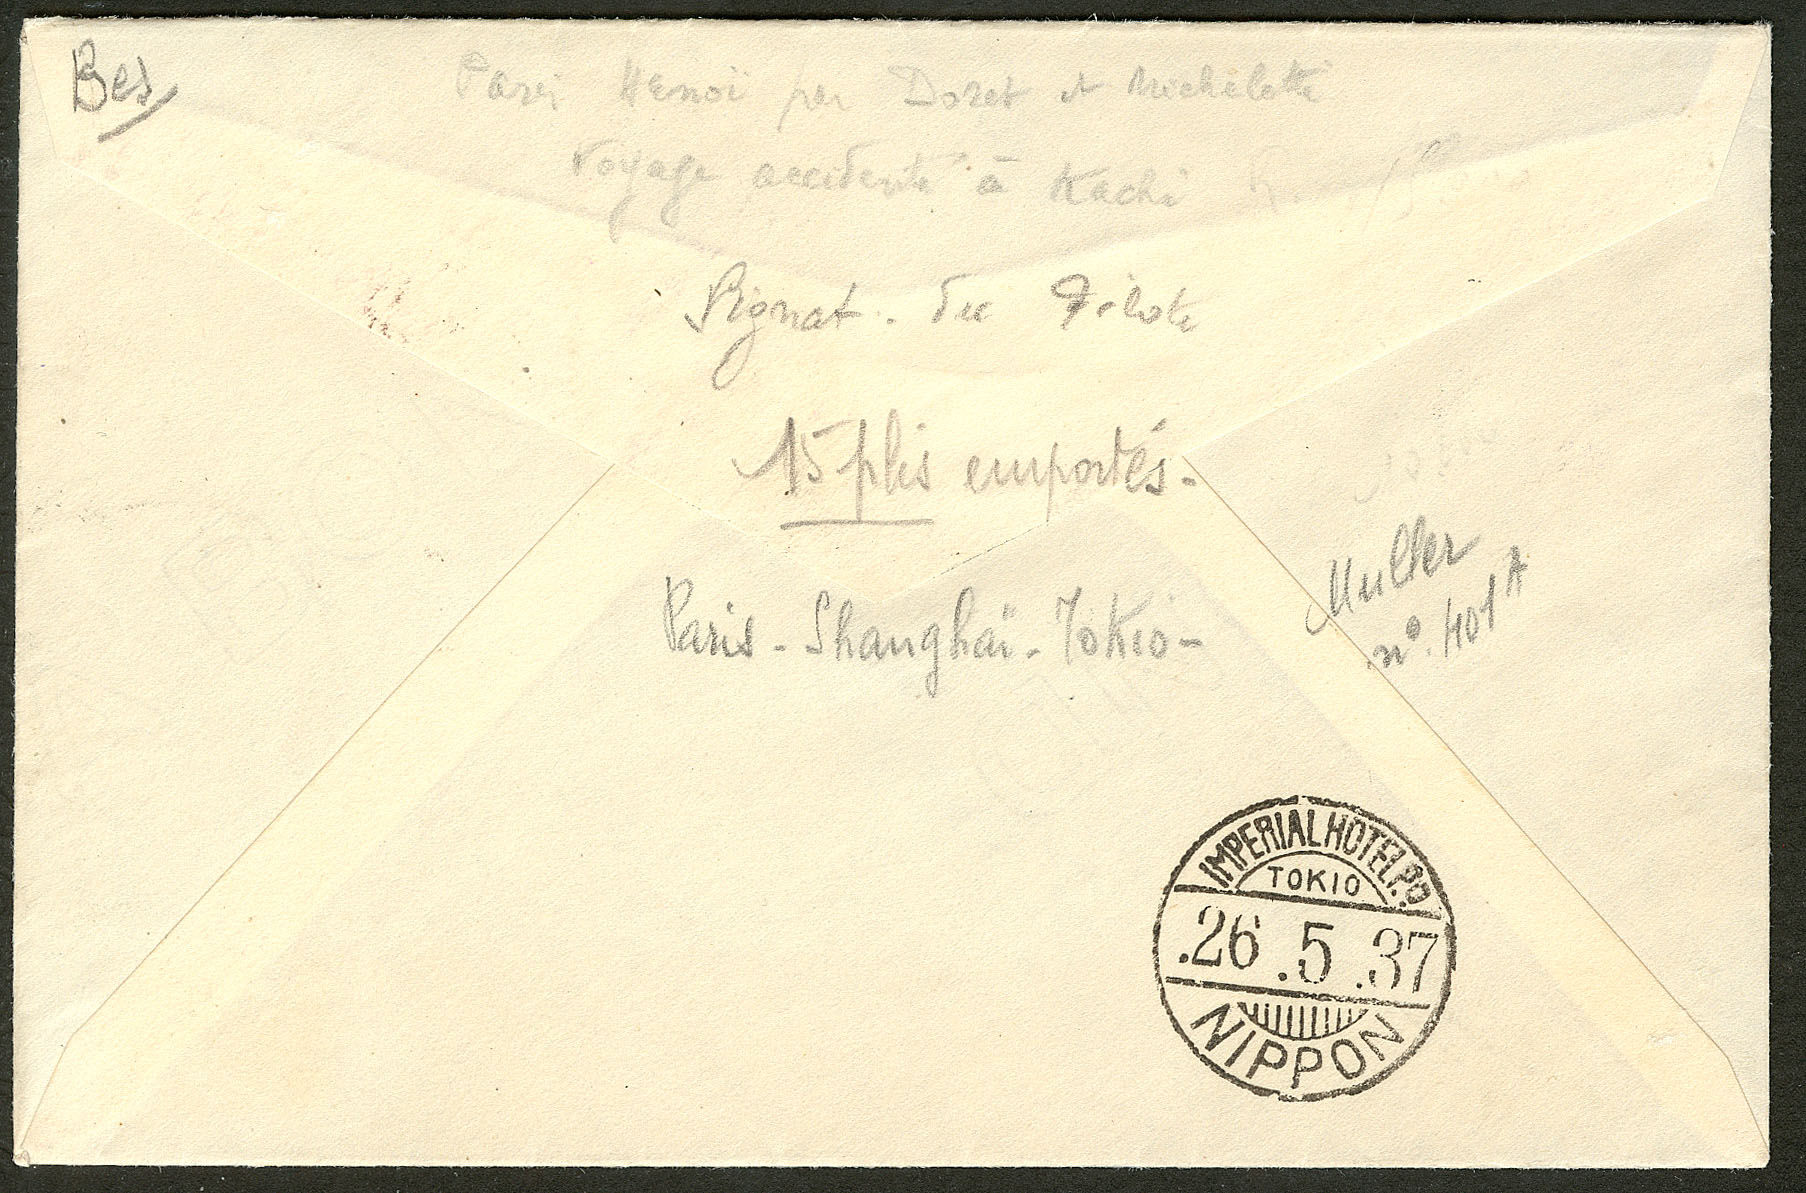 Bes
Paris Hanoï par Doret et Micheletti
Voyage accidenté à Kachi
Signat. du Pilote
15 plis emportés.
Paris - Shanghaï - Tokio -
Muller
n°. 401 A
IMPERIAL HOTEL P.O
TOKIO
.26 .5 .37
NIPPON